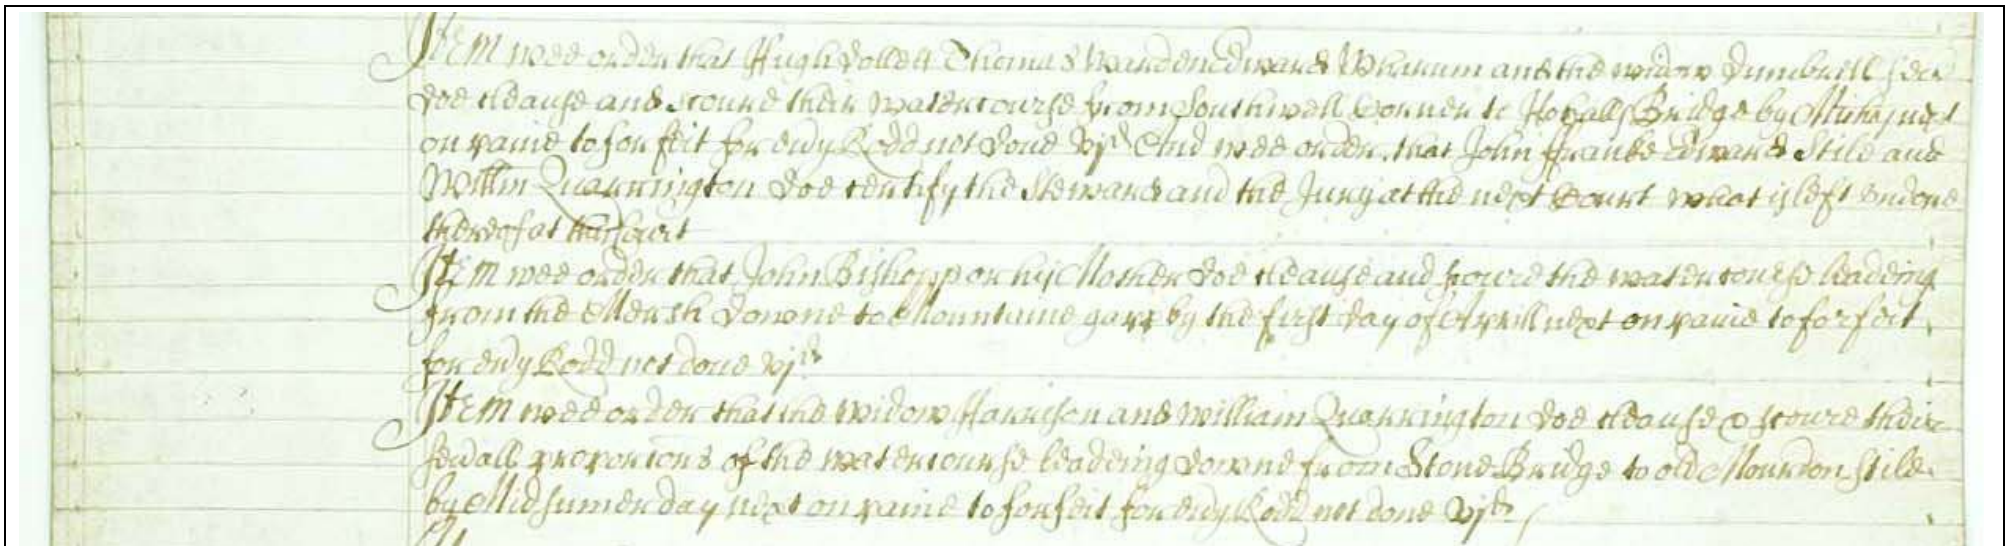 Item wee order that Hugh Vollett Thomas Warden Edward Wharum and the widow Dumbrell sen
doe cleanse and scoure their watercourse from Southwell Corner to Bridge by Michas next
on paine to forfeit for evy Rodd not done vjd And wee order that John Franke Edward Stile and
Willm Quarrington doe certify the Steward and the Jury at the next Court what is left undone
thereof at that Court
Item wee order that John Bishopp or his Mother doe cleanse and scoure the watercourse leading
from the Mersh downe to Mountaine gapp by the first day of Aprill next on paine to forfeit
for evy Rodd not done vjd
Item wee order that the widow Harrison and William Quarrington doe cleanse & scoure their
sevall proporcons of the watercourse leadeing downe from Stone Bridge to old Stile
by Midsumer day next on paine to forfeit for evy Rodd not done vjd